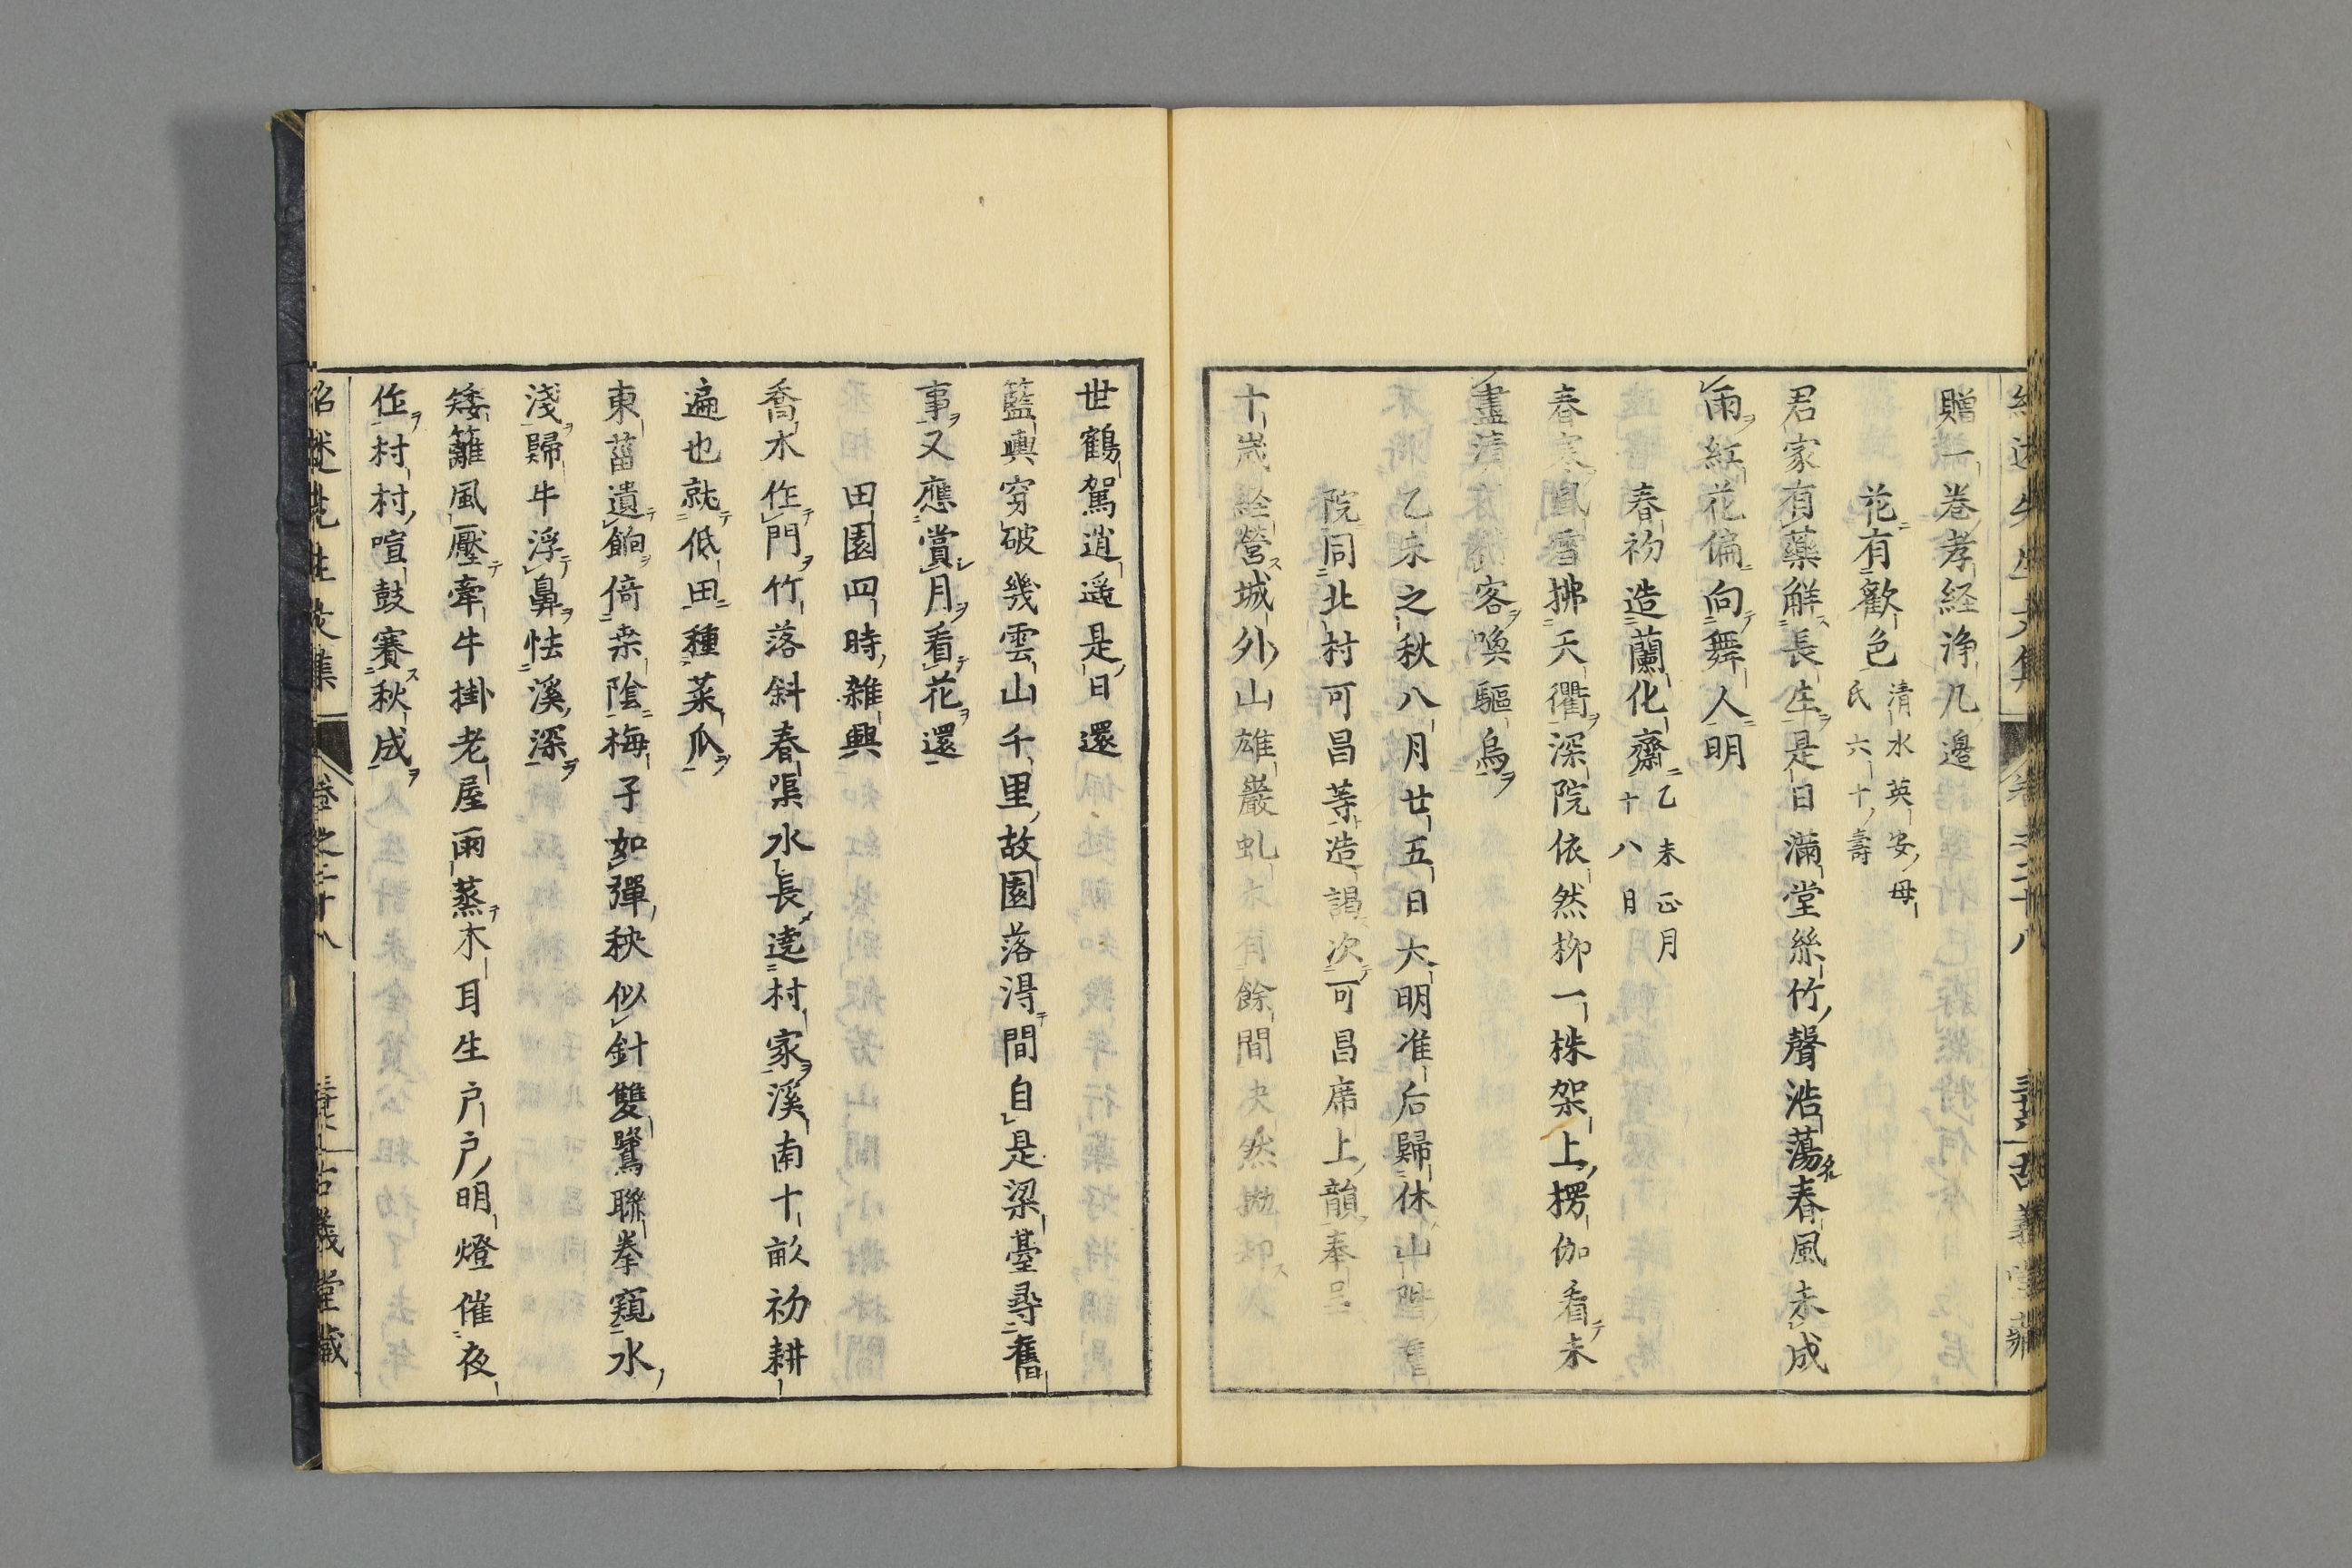 贈一卷孝経浄几邊
花有歡色 清水英安母氏六十壽
君家有藥觧長生是日滿堂絲竹聲浩蕩春風未成
雨紅花偏向舞人明
春初造蘭化齋 乙未正月十八日
春寒風雪拂天衢深院依然柳一株架上楞伽看未
盡漬茶客喚驅烏
乙未之秋八月廿五日大明准后歸休山階舊
院同北村可昌等造謁次可昌席上韻奉呈
十歳経營城外山雄巖虬木有餘間决然拗却人
世鶴駕逍遥是日還
籃輿穿破幾雲山千里故園落得間自是梁臺尋舊
事又應賞月看花還
田園四時雜興
喬木作門竹落斜春渠水長遶村家溪南十畝初耕
遍也就低田種菜瓜
東菑遺餉倚桒陰梅子如彈秧似針雙鷺聯拳窺水
淺歸牛浮鼻怯溪深
矮籬風壓牽牛掛老屋雨蒸木耳生戸戸明燈催夜
作村村喧鼓賽秋成
紹述先生文集 卷之二十八 古義堂藏